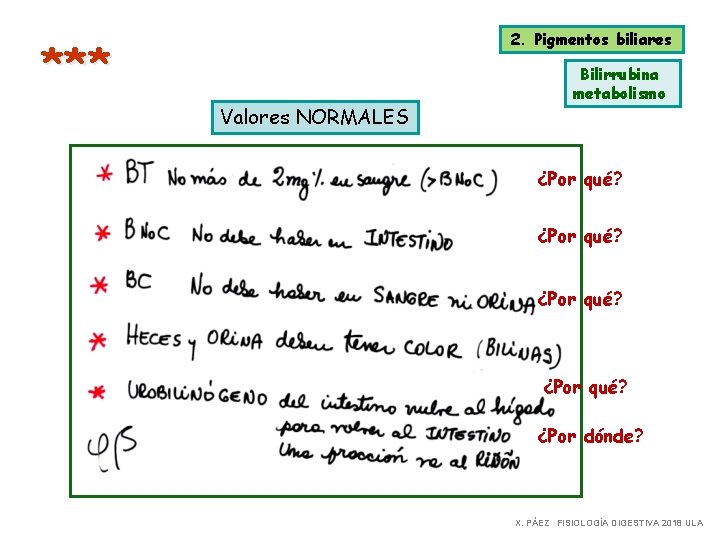 ***
2. Pigmentos biliares
Bilirrubina
metabolismo
Valores NORMALES
* BT No más de 2mg% en sangre (>BNoC)
¿Por qué?
* BNoC No debe haber en INTESTINO
¿Por qué?
* BC No debe haber en SANGRE ni ORINA
¿Por qué?
* HECES y ORINA deben tener COLOR (BILINAS)
¿Por qué?
* UROBILINÓGENO del intestino vuelve al hígado
para volver al INTESTINO
¿Por dónde?
Una fracción va al RIÑÓN
X. PÁEZ FISIOLOGÍA DIGESTIVA 2018 ULA